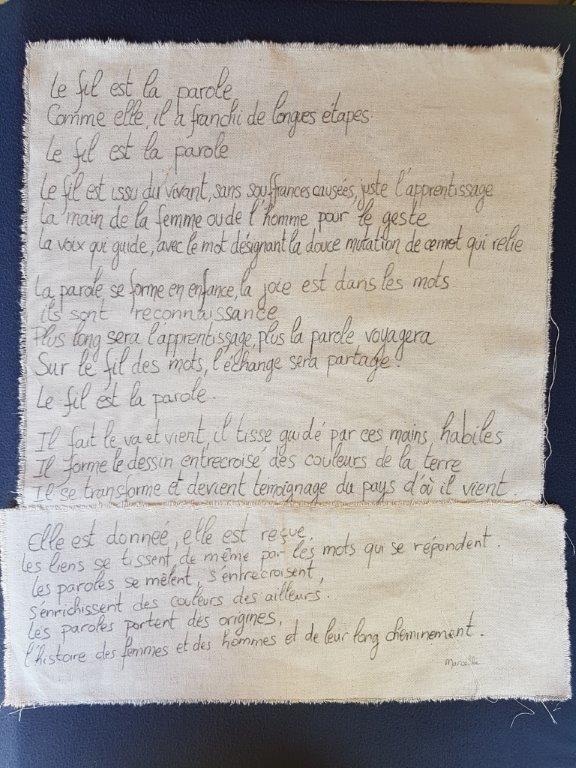 Le fil est la parole
Comme elle, il a franchi de longues étapes.
Le fil est la parole
Le fil est issu du vivant, sans souffrances causées, juste l'apprentissage
La main de la femme ou de l'homme pour le geste
La voix qui guide, avec le mot désignant la douce mutation de ce mot qui relie
La parole se forme en enfance, la joie est dans les mots
ils sont reconnaissance
Plus long sera l'apprentissage, plus la parole voyagera
Sur le fil des mots, l'échange sera partage.
Le fil est la parole.
Il fait le va et vient, il tisse guidé par ces mains, habiles
Il forme le dessin entrecroisé des couleurs de la terre
Il se transforme et devient temoignage du pays d'où il vient.
Elle est donnée, elle est reçue.
Les liens se tissent de même par les mots qui se répondent.
Les paroles se mêlent, s'entrecroisent,
s'enrichissent des couleurs des ailleurs.
Les paroles portent des origines,
l'histoire des femmes et des hommes et de leur long cheminement.